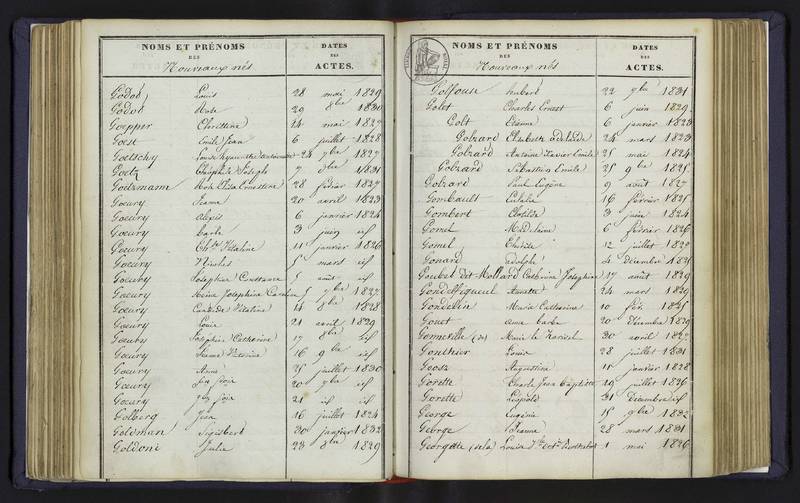 NOMS ET PRÉNOMS
DES
Nouveaux nés
DATES
DES
ACTES.
Godot Louis 28 mai 1829
Godot Rose 29 8bre 1830
Goepper Christine 14 mai 1827
Goest Emile Jean 6 juillet 1828
Goetschy 24 9bre 1827
Goetz Joseph 7 8bre 1831
Goetzmann 28 février 1827
Goeury Jeanne 20 avril 1823
Goeury Alexis 6 janvier 1824
Goeury Barbe 3 juin id
Goeury Vitaline 11 janvier 1826
Goeury Nicolas 5 mars id
Goeury Josephine Constance 5 août id
Goeury Reine Josephine Caroline 5 9bre 1827
Goeury Vitaline 14 8bre 1828
Goeury Louis 21 avril 1829
Goeury Josephine Catherine 17 8bre id
Goeury Jeanne Victorine 16 9bre id
Goeury Anne 25 juillet 1830
Goeury 20 7bre id
Goeury 21 id id
Golberg Jean 16 juillet 1824
Goldman Sigisbert 30 janvier 1832
Goldoni Julie 23 8bre 1829
NOMS ET PRÉNOMS
DES
Nouveaux nés
DATES
DES
ACTES.
Golfouse hubert 22 9bre 1831
Golet Charles Ernest 6 juin 1829
Golt Etienne 6 janvier 1823
Golzard Elisabeth Adélaïde 24 mars 1823
Golzard Antoine Xavier Emile 25 mai 1824
Golzard Sébastien Emile 25 9bre 1825
Golzard Paul Eugène 9 août 1827
Gombault Eulalie 16 février 1825
Gombert Clotilde 3 juin 1824
Gomel Madelaine 6 février 1826
Gomel 12 juillet
Gonard adolphe 4 décembre
Goubet dit Mollard Catherine Josephine 17 août 1829
Gondelfiqueul Annette 24 mars 1829
Gondelin Marie Catherine 10 fév. 1825
Gouet anne barbe 20 Décembre 1829
Gonneville (de) Marie 30 avril 1827
Gonthier Louis 28 juillet 1831
Goosz Augustine 15 janvier 1828
Gorette Charle Jean Baptiste 19 juillet 1826
Gorette Léopold 31 Décembre id
George Eugénie 15 9bre 1832
George Jeanne 28 mars 1831
Georgette (de la) Louise 1 mai 1826